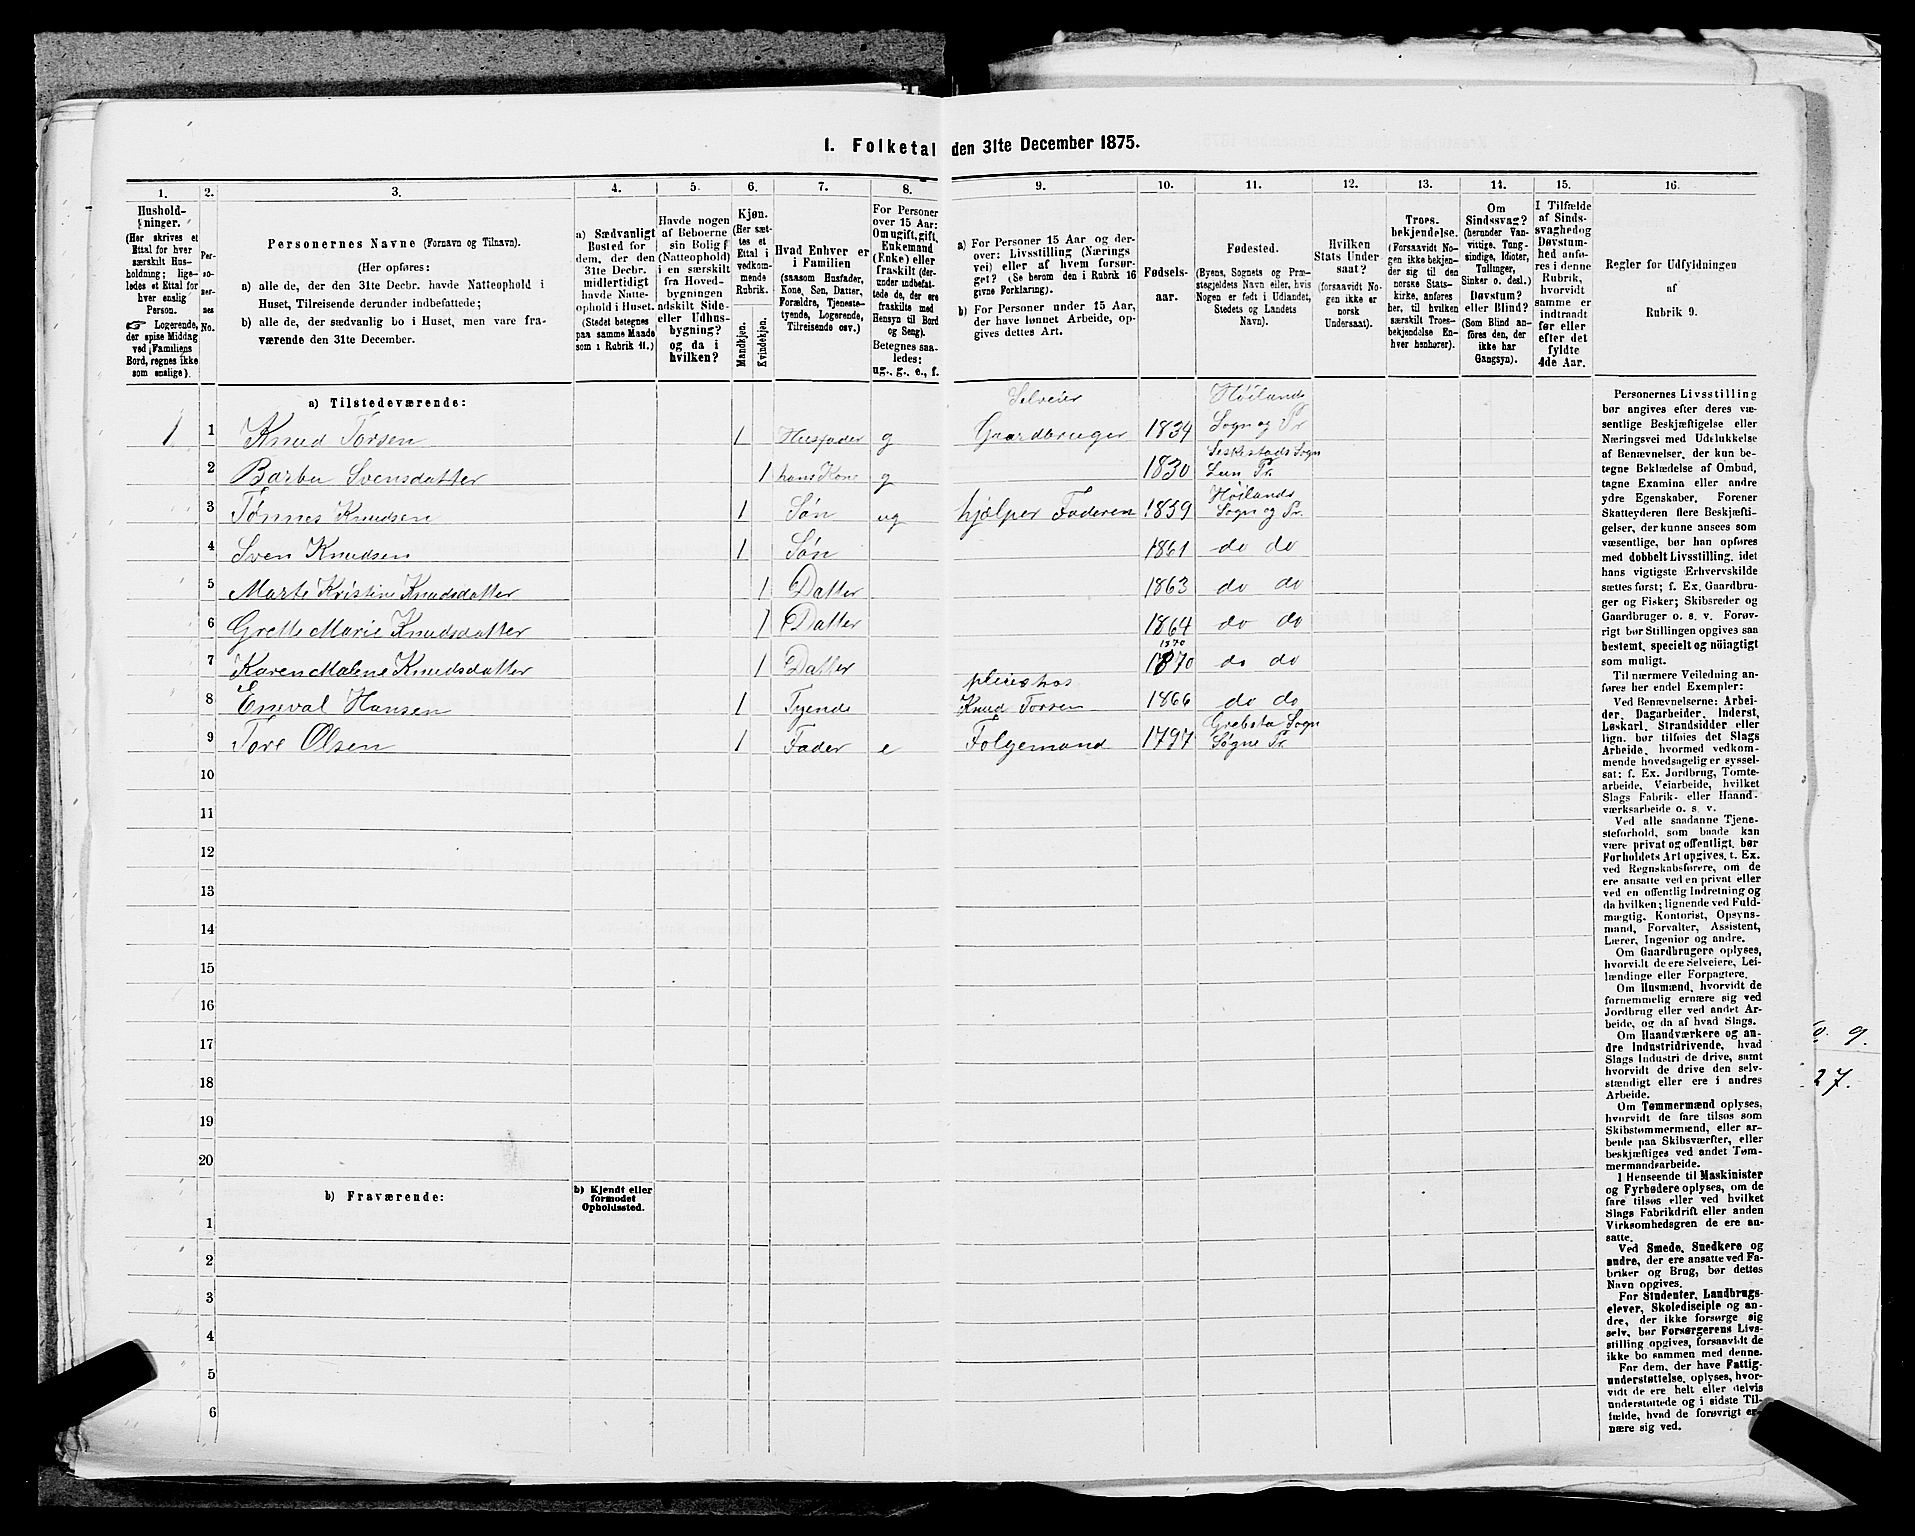 1. Folketal den 31te December 1875.
1. 2. 3. 4. 5. 6. 7. 8. 9. 10. 11. 12. 13. 14. 15. 16.
Hushold-
ninger.
(Her skrives et
Ettal for hver
særskilt Hus-
holdning; lige-
ledes et Ettal for
hver enslig
Person.
☞ Logerende,
der spise Middag
ved Familiens
Bord, regnes ikke
som enslige).
Per-
so-
ner-
nes
No.
Personernes Navne (Fornavn og Tilnavn).
(Her opføres:
a) alle de, der den 31te Decbr. havde Natteophold i
Huset, Tilreisende derunder indbefattede;
b) alle de, der sædvanlig bo i Huset, men vare fra-
værende den 31te December.
a) Sædvanligt
Bosted for
dem, der den
31te Decbr.
midlertidigt
havde Natte-
ophold i Huset.
(Stedet betegnes
paa samme Maade
som i Rubrik 11.)
Havde nogen
af Beboerne
sin Bolig
(Natteophold)
i en særskilt
fra Hoved-
bygningen
adskilt Side-
eller Udhus-
bygning?
og da i
hvilken?
Kjøn.
(Her sæt-
tes et
Ettal i
vedkom-
mende
Rubrik.
Mandkjøn.
Kvindekjøn.
Hvad Enhver er
i Familien
(saasom Husfader,
Kone, Søn, Datter,
Forældre, Tjeneste-
tyende, Logerende,
Tilreisende osv.)
For Personer
over 15 Aar:
Om ugift, gift,
Enkemand
(Enke) eller
fraskilt (der-
under indbefat-
tede de, der ere
fraskilte med
Hensyn til Bord
og Seng).
Betegnes saa-
ledes:
ug., g., e., f.
a) For Personer 15 Aar og der-
over: Livsstilling (Nærings-
vei) eller af hvem forsør-
get? (Se herom den i Rubrik 16
givne Forklaring).
b) For Personer under 15 Aar,
der have lønnet Arbeide, op-
gives dettes Art.
Fødsels-
aar.
Fødested.
(Byens, Sognets og Præ-
stegjeldets Navn eller, hvis
Nogen er født i Udlandet,
Stedets og Landets
Navn).
Hvilken
Stats Under-
saat?
(forsaavidt No-
gen ikke er
norsk
Undersaat).
Troes-
bekjendelse.
(Forsaavidt No-
gen ikke bekjen-
der sig til den
norske Stats-
kirke, anføres
her, til hvilken
særskilt Troes-
bekjendelse En-
hver henhører).
Om
Sindssvag?
(herunder Van-
vittige, Tung-
sindige, Idioter,
Tullinger,
Sinker o. desl.)
Døvstum?
eller Blind?
(Som Blind an-
føres den, der
ikke har
Gangsyn).
I Tilfælde
af Sinds-
svaghed og
Døvstum-
hed anfø-
res i denne
Rubrik,
hvorvidt
samme er
indtraadt
før eller
efter det
fyldte
4de Aar.
Regler for Udfyldningen
af
Rubrik 9.
a) Tilstedeværende:
1 1 Knud Torsen 1 Husfader g Selveier Gaardbruger 1834 Høilands Sogn og Pr
2 Barbu Svensdatter 1 hans Kone g 1830 Sogn Lun Pr.
3 Tønnes Knudsen 1 Søn ug hjælper Faderen 1859 Høilands Sogn og Pr.
4 Sven Knudsen 1 Søn 1861 do do
5 Marte Kristine Knudsdatter 1 Datter 1863 do do
6 Grette Marie Knudsdatter 1 Datter 1864 do do
7 Karen Malene Knudsdatter 1 Datter 1870 1870 do do
8 Eneval Hansen 1 Tyende pleies hos Knud Torsen 1866 do do
9 Tore Olsen 1 Fader e Folgemand 1797 Sogn Søgne Pr.
10
11
12
13
14
15
16
17
18
19
20
b) Fraværende:
b) Kjendt eller
formodet
Opholdssted.
1
2
3
4
5
6
Personernes Livsstilling
bør angives efter deres væ-
sentlige Beskjæftigelse eller
Næringsvei med Udelukkelse
af Benævnelser, der kun be-
tegne Beklædelse af Ombud,
tagne Examina eller andre
ydre Egenskaber. Forener
Skatteyderen flere Beskjæfti-
gelser, der kunne ansees som
væsentlige, bør han opføres
med dobbelt Livsstilling, idet
hans vigtigste Erhvervskilde
sættes først; f. Ex. Gaardbru-
ger og Fisker; Skibsreder og
Gaardbruger o. s. v. Forøv-
rigt bør Stillingen opgives saa
bestemt, specielt og nöiagtigt
som muligt.
Til nærmere Veiledning an-
føres her endel Exempler:
Ved Benævnelserne: Arbei-
der, Dagarbeider, Inderst,
Løskarl, Strandsidder eller
lign. bør tilføies det Slags
Arbeide, hvormed vedkom-
mende hovedsagelig er syssel-
sat; f. Ex. Jordbrug, Tomte-
arbeide, Veiarbeide, hvilket
Slags Fabrik- eller Haand-
værksarbeide o. s. v.
Ved alle saadanne Tjene-
steforhold, som baade kan
være privat og offentligt, bør
Forholdets Art opgives, t. Ex.
ved Regnskabsførere, om de
ere ansatte ved en privat eller
ved en offentlig Indretning og
da hvilken; lignende ved Fuld-
mægtig, Kontorist, Opsyns-
mand, Forvalter, Assistent,
Lærer, Ingeniør og andre.
Om Gaardbrugere oplyses,
hvorvidt de ere Selveiere, Lei-
lændinge eller Forpagtere.
Om Husmænd, hvorvidt de
fornemmelig ernære sig ved
Jordbrug eller ved andet Ar-
beide, og da af hvad Slags.
Om Haandværkere og an-
dre Industridrivende, hvad
Slags Industri de drive, samt
hvorvidt de drive den selv-
stændigt eller ere i andres
Arbeide.
Om Tømmermænd oplyses,
hvorvidt de fare tilsøs som
Skibstømmermænd, eller ar-
beide paa Skibsværfter, eller
beskjæftiges ved andet Tøm-
mermandsarbeide.
I Henseende til Maskinister
og Fyrbødere oplyses, om de
fare tilsøs eller ved hvilket
Slags Fabrikdrift eller anden
Virksomhedsgren de ere an-
satte.
Ved Smede, Snedkere og
andre, der ere ansatte ved Fa-
briker og Brug, bør dettes
Navn opgives.
For Studenter, Landbrugs-
elever, Skoledisciple og an-
dre, der ikke forsørge sig
selv, bør Forsørgerens Livs-
stilling opgives, forsaavidt de
ikke bo sammen med denne.
For dem, der have Fattig-
understøttelse, oplyses, hvor-
vidt de ere helt eller delvis
understøttede og i sidste Til-
fælde, hvad de forøvrigt er-
nære sig ved.
9.
27.